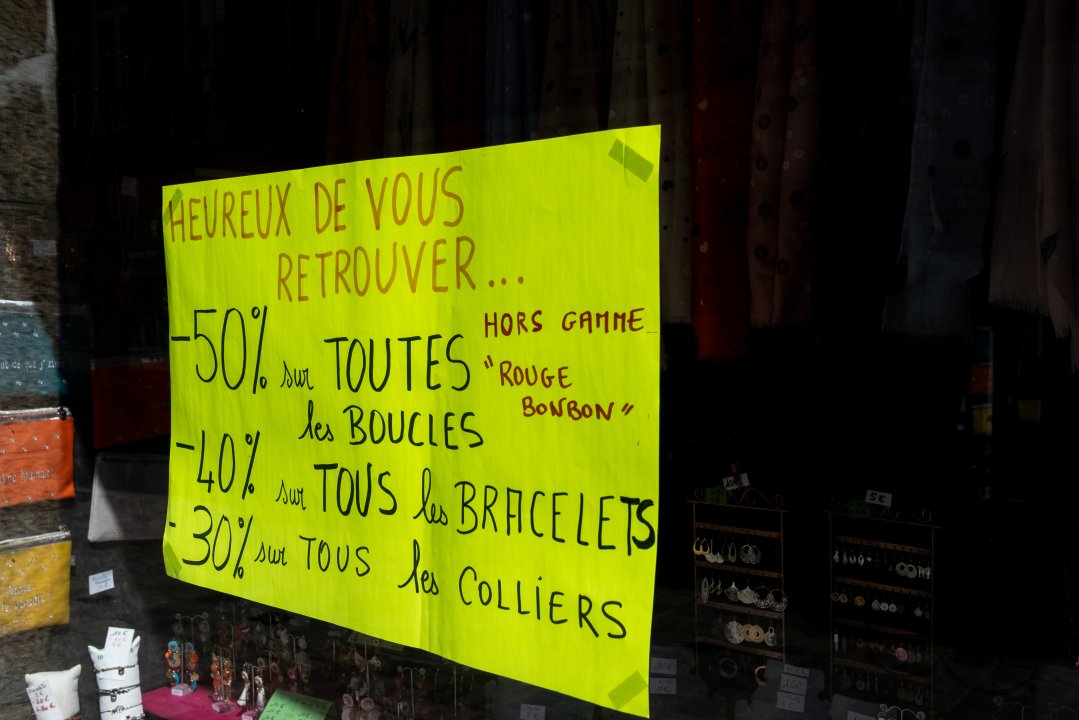 HEUREUX DE VOUS
RETROUVER...
-50% sur TOUTES
les BOUCLES
HORS GAMME
"ROUGE
BONBON"
-40% sur TOUS les BRACELETS
-30% sur TOUS les COLLIERS
5€